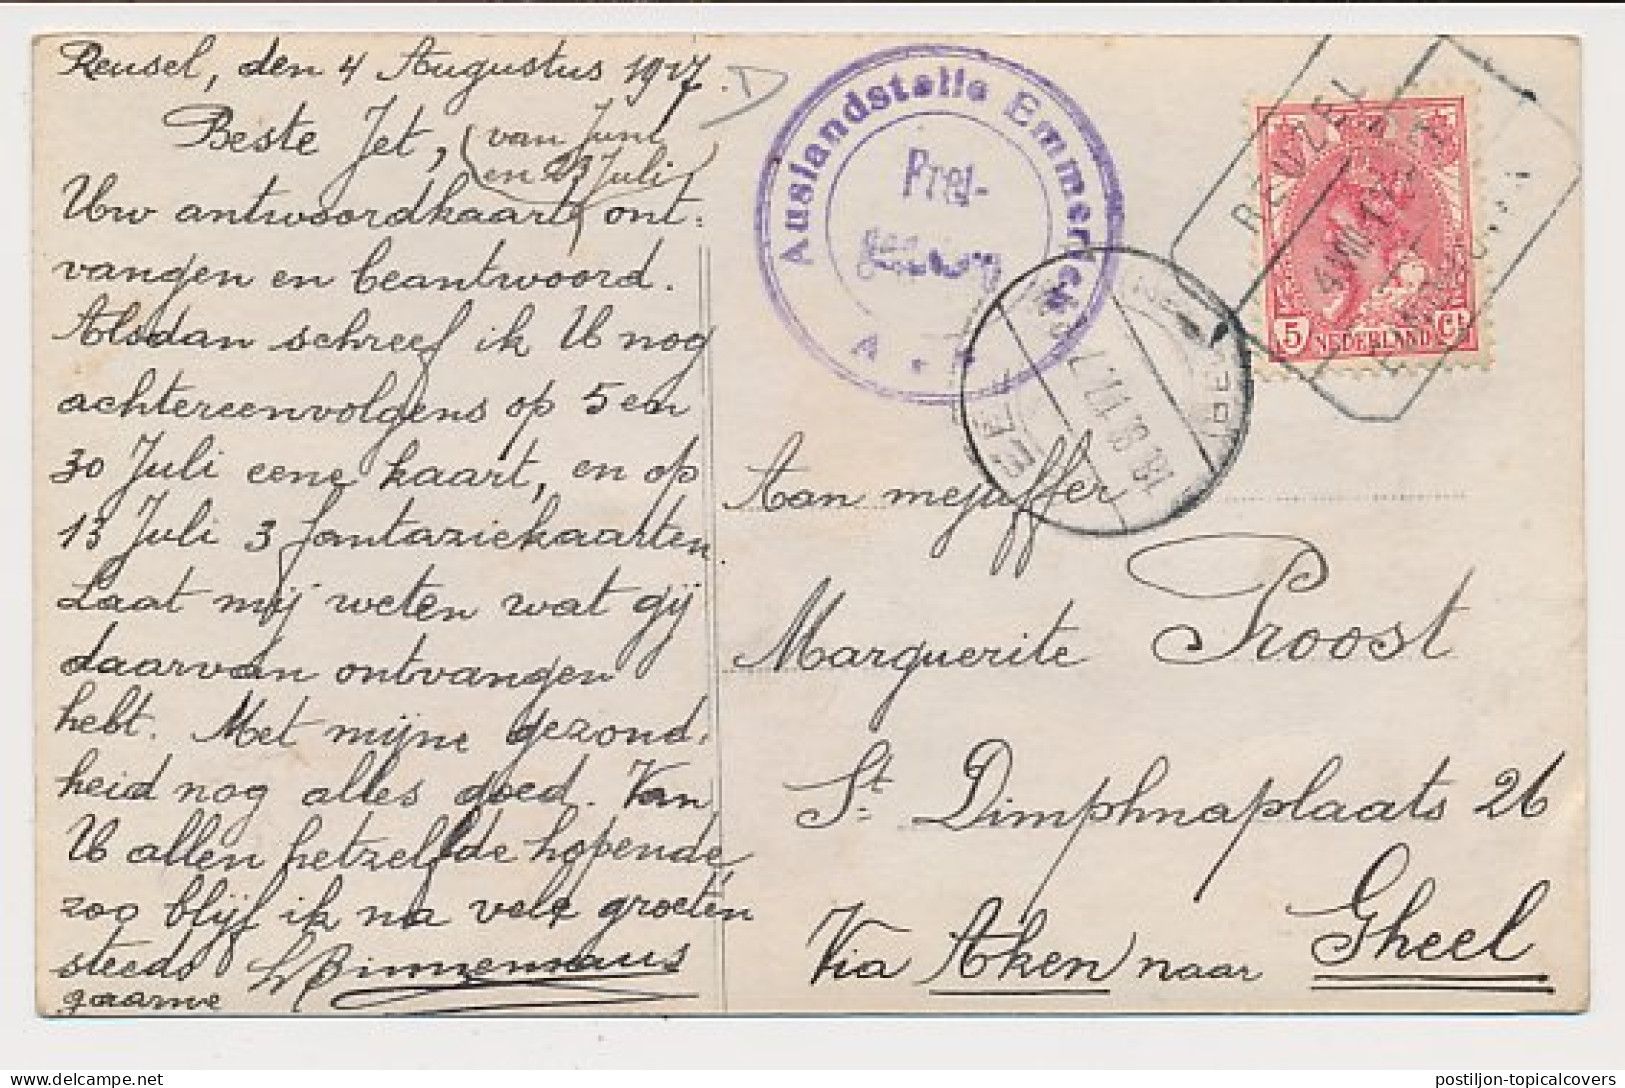 Reusel, den 4 Augustus 1917.
Beste Jet, (van Juni
en 23 Juli)
Uw antwoordkaart ont-
vangen en beantwoord.
Alsdan schreef ik U nog
achtereenvolgens op 5 en
30 Juli eene kaart, en op
13 Juli 3 fantaziekaarten.
Laat mij weten wat gij
daarvan ontvangen
hebt. Met mijne gezond-
heid nog alles goed. Van
U allen hetzelfde hopende,
zoo blijf ik na vele groeten
steeds
gaarne
Auslandstelle Emmerich
Frei-
gegeben
REUZEL
5 NEDERLAND Ct
Aan mejuffer
Marguerite Proost
St Dimphnaplaats 26
Via Aken naar Gheel
postiljon-topicalcovers